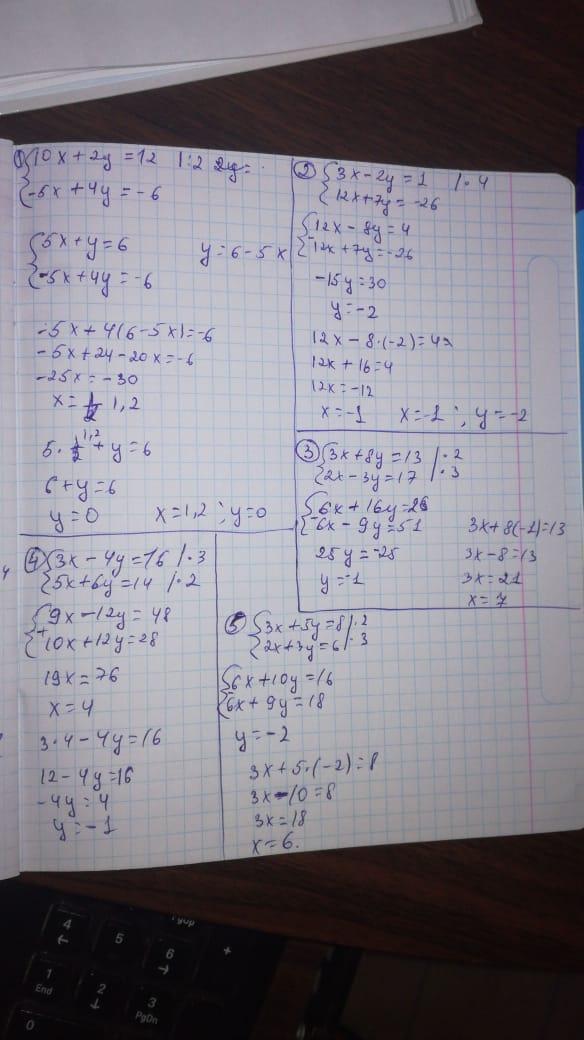 ① {10x + 2y = 12 | :2 2y =
{-5x + 4y = -6
{5x + y = 6 y = 6 - 5x
{-5x + 4y = -6
-5x + 4(6 - 5x) = -6
-5x + 24 - 20x = -6
-25x = -30
x = 1,2
5 · 1,2 + y = 6
6 + y = 6
y = 0 x = 1,2 ; y = 0
② {3x - 2y = 1 | · 4
{12x + 7y = -26
{12x - 8y = 4
{12x + 7y = -26
-15y = 30
y = -2
12x - 8 · (-2) = 4
12x + 16 = 4
12x = -12
x = -1 x = -1 ; y = -2
③ {3x + 8y = 13 | · 2
{2x - 3y = 17 | · 3
{6x + 16y = 26
{6x - 9y = 51
25y = -25
y = -1
3x + 8(-1) = 13
3x - 8 = 13
3x = 21
x = 7
④ {3x - 4y = 16 | · 3
{5x + 6y = 14 | · 2
{9x - 12y = 48
+
{10x + 12y = 28
19x = 76
x = 4
3 · 4 - 4y = 16
12 - 4y = 16
-4y = 4
y = -1
5 {3x + 5y = 8 | · 2
{2x + 3y = 6 | · 3
{6x + 10y = 16
{6x + 9y = 18
y = -2
3x + 5 · (-2) = 8
3x - 10 = 8
3x = 18
x = 6.
4
←
5
6
→
+
1
End
2
↓
3
PgDn
0
PgUp